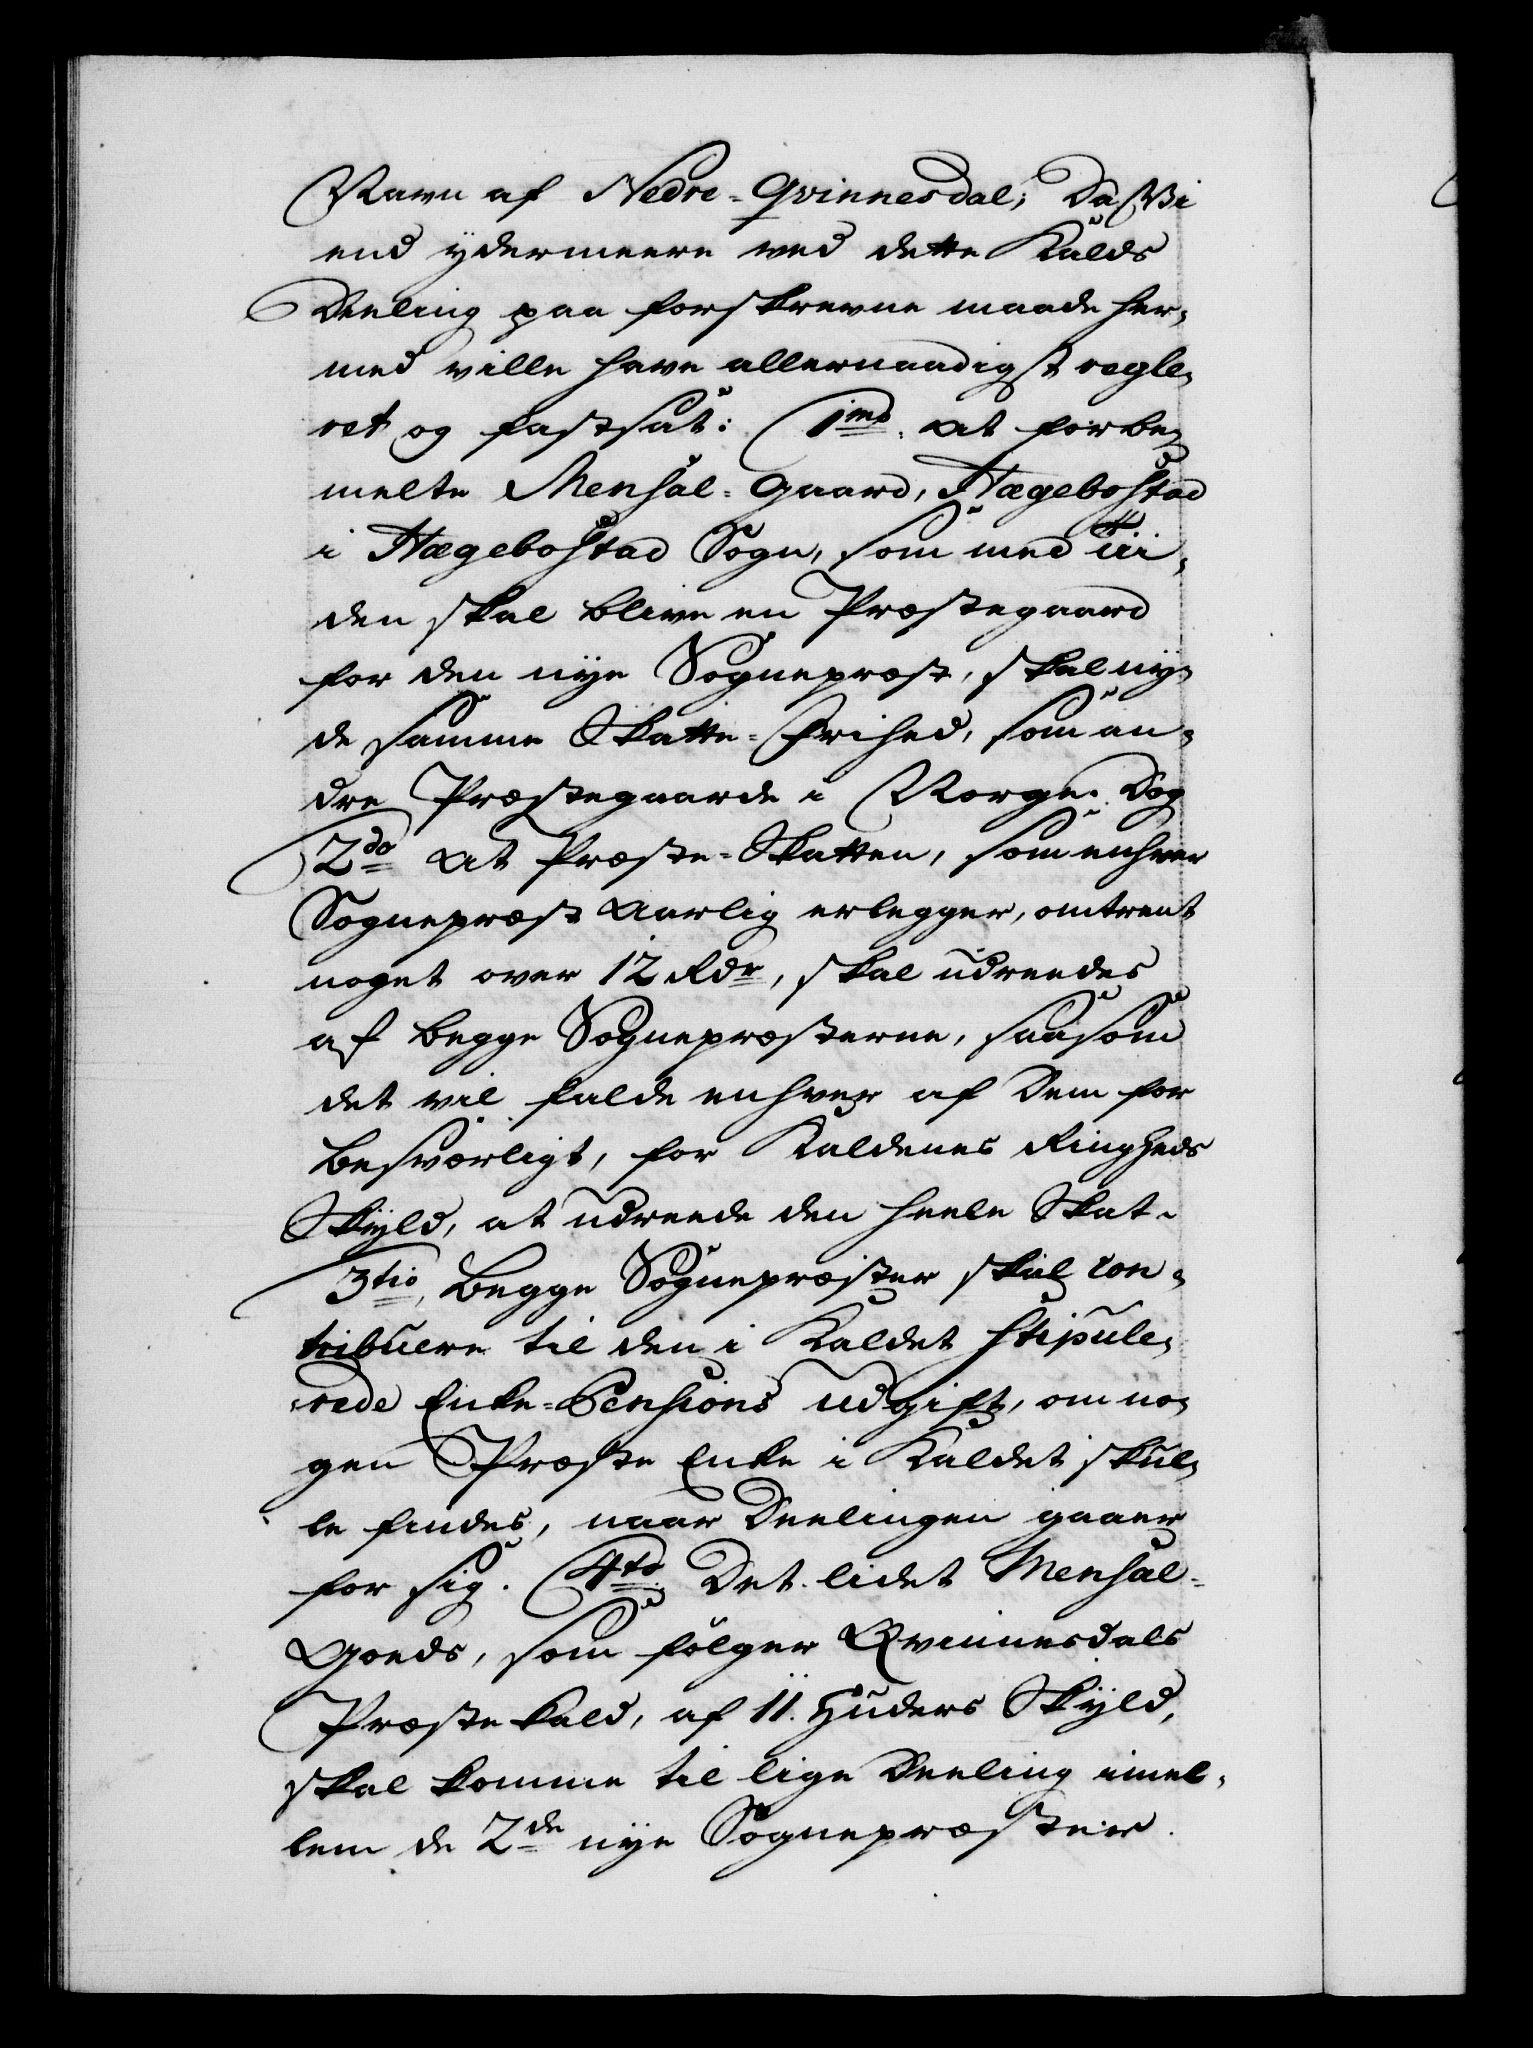 Navn af Nedre-Qvinnesdal; Da Vi
end ydermeere ved dette Kalds
Deeling paa forskrevne maade her,
med ville have allernaadigst regle,
ret og fastsat: 1mo. At forbe,
melte Mensal-Gaard, Hægebostad
i Hægebostad Sogn, som med Tii,
den skal blive en Præstegaard
for den nye Sognepræst, skal ny,
de samme Skatte-Frihed, som an,
dre Præstegaarde i Norge. Dog
2do At Præste-Skatten, som enhver
Sognepræst Aarlig erlegger, omtrent
noget over 12 Rdr, skal udreedes
af begge Sognepræsterne, saasom
det vil falde enhver af Dem for
besværligt, for Kaldenes Ringheds
Skyld, at udreede den heele Skat.
3tio, Begge Sognepræster skal con,
tribuere til den i Kaldet stipule,
rede Enke-Pensions Udgift, om no,
gen Præste Enke i Kaldet skul,
le findes, naar Deelingen gaaer
for sig. 4to. Det lidet Mensal-
Goeds, som følger Qvinnesdals
Præstekald, af 11. Huders Skyld,
skal komme til lige Deeling imel,
lem de 2de nye Sognepræster.